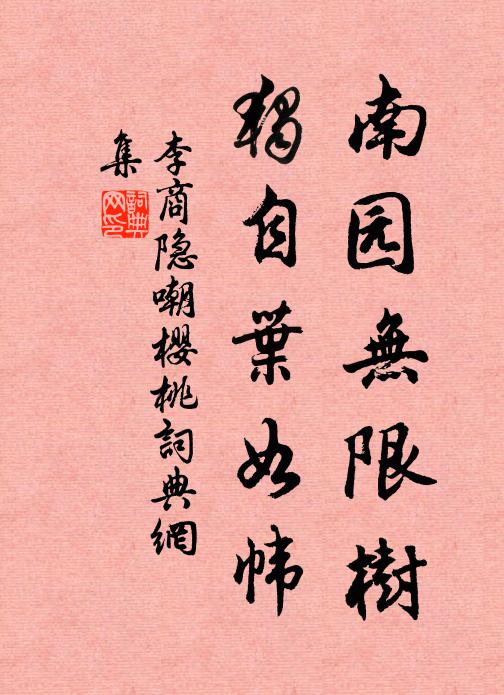 南园無限樹
獨自葉如幃
李商隐嘲櫻桃詞典網
集
詞典
网印